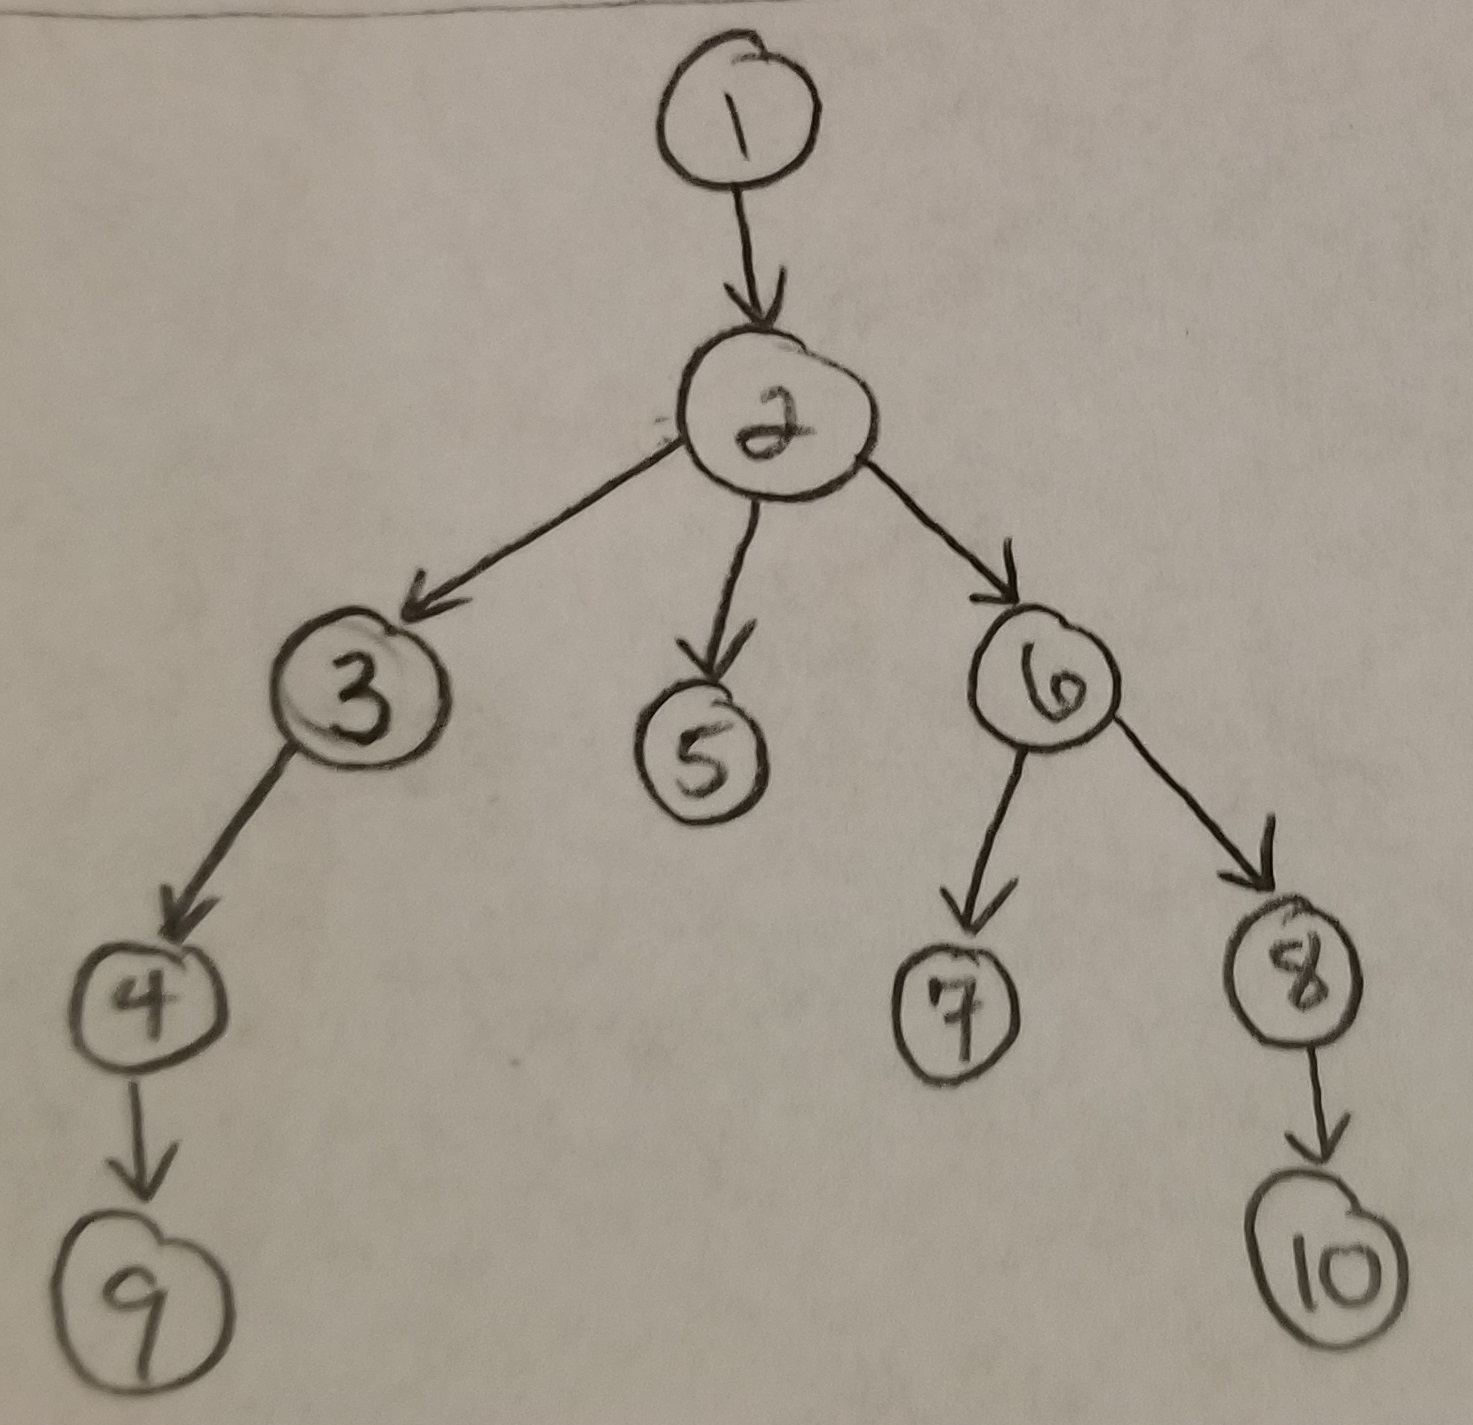 1
2
3 5 6
4 7 8
9 10